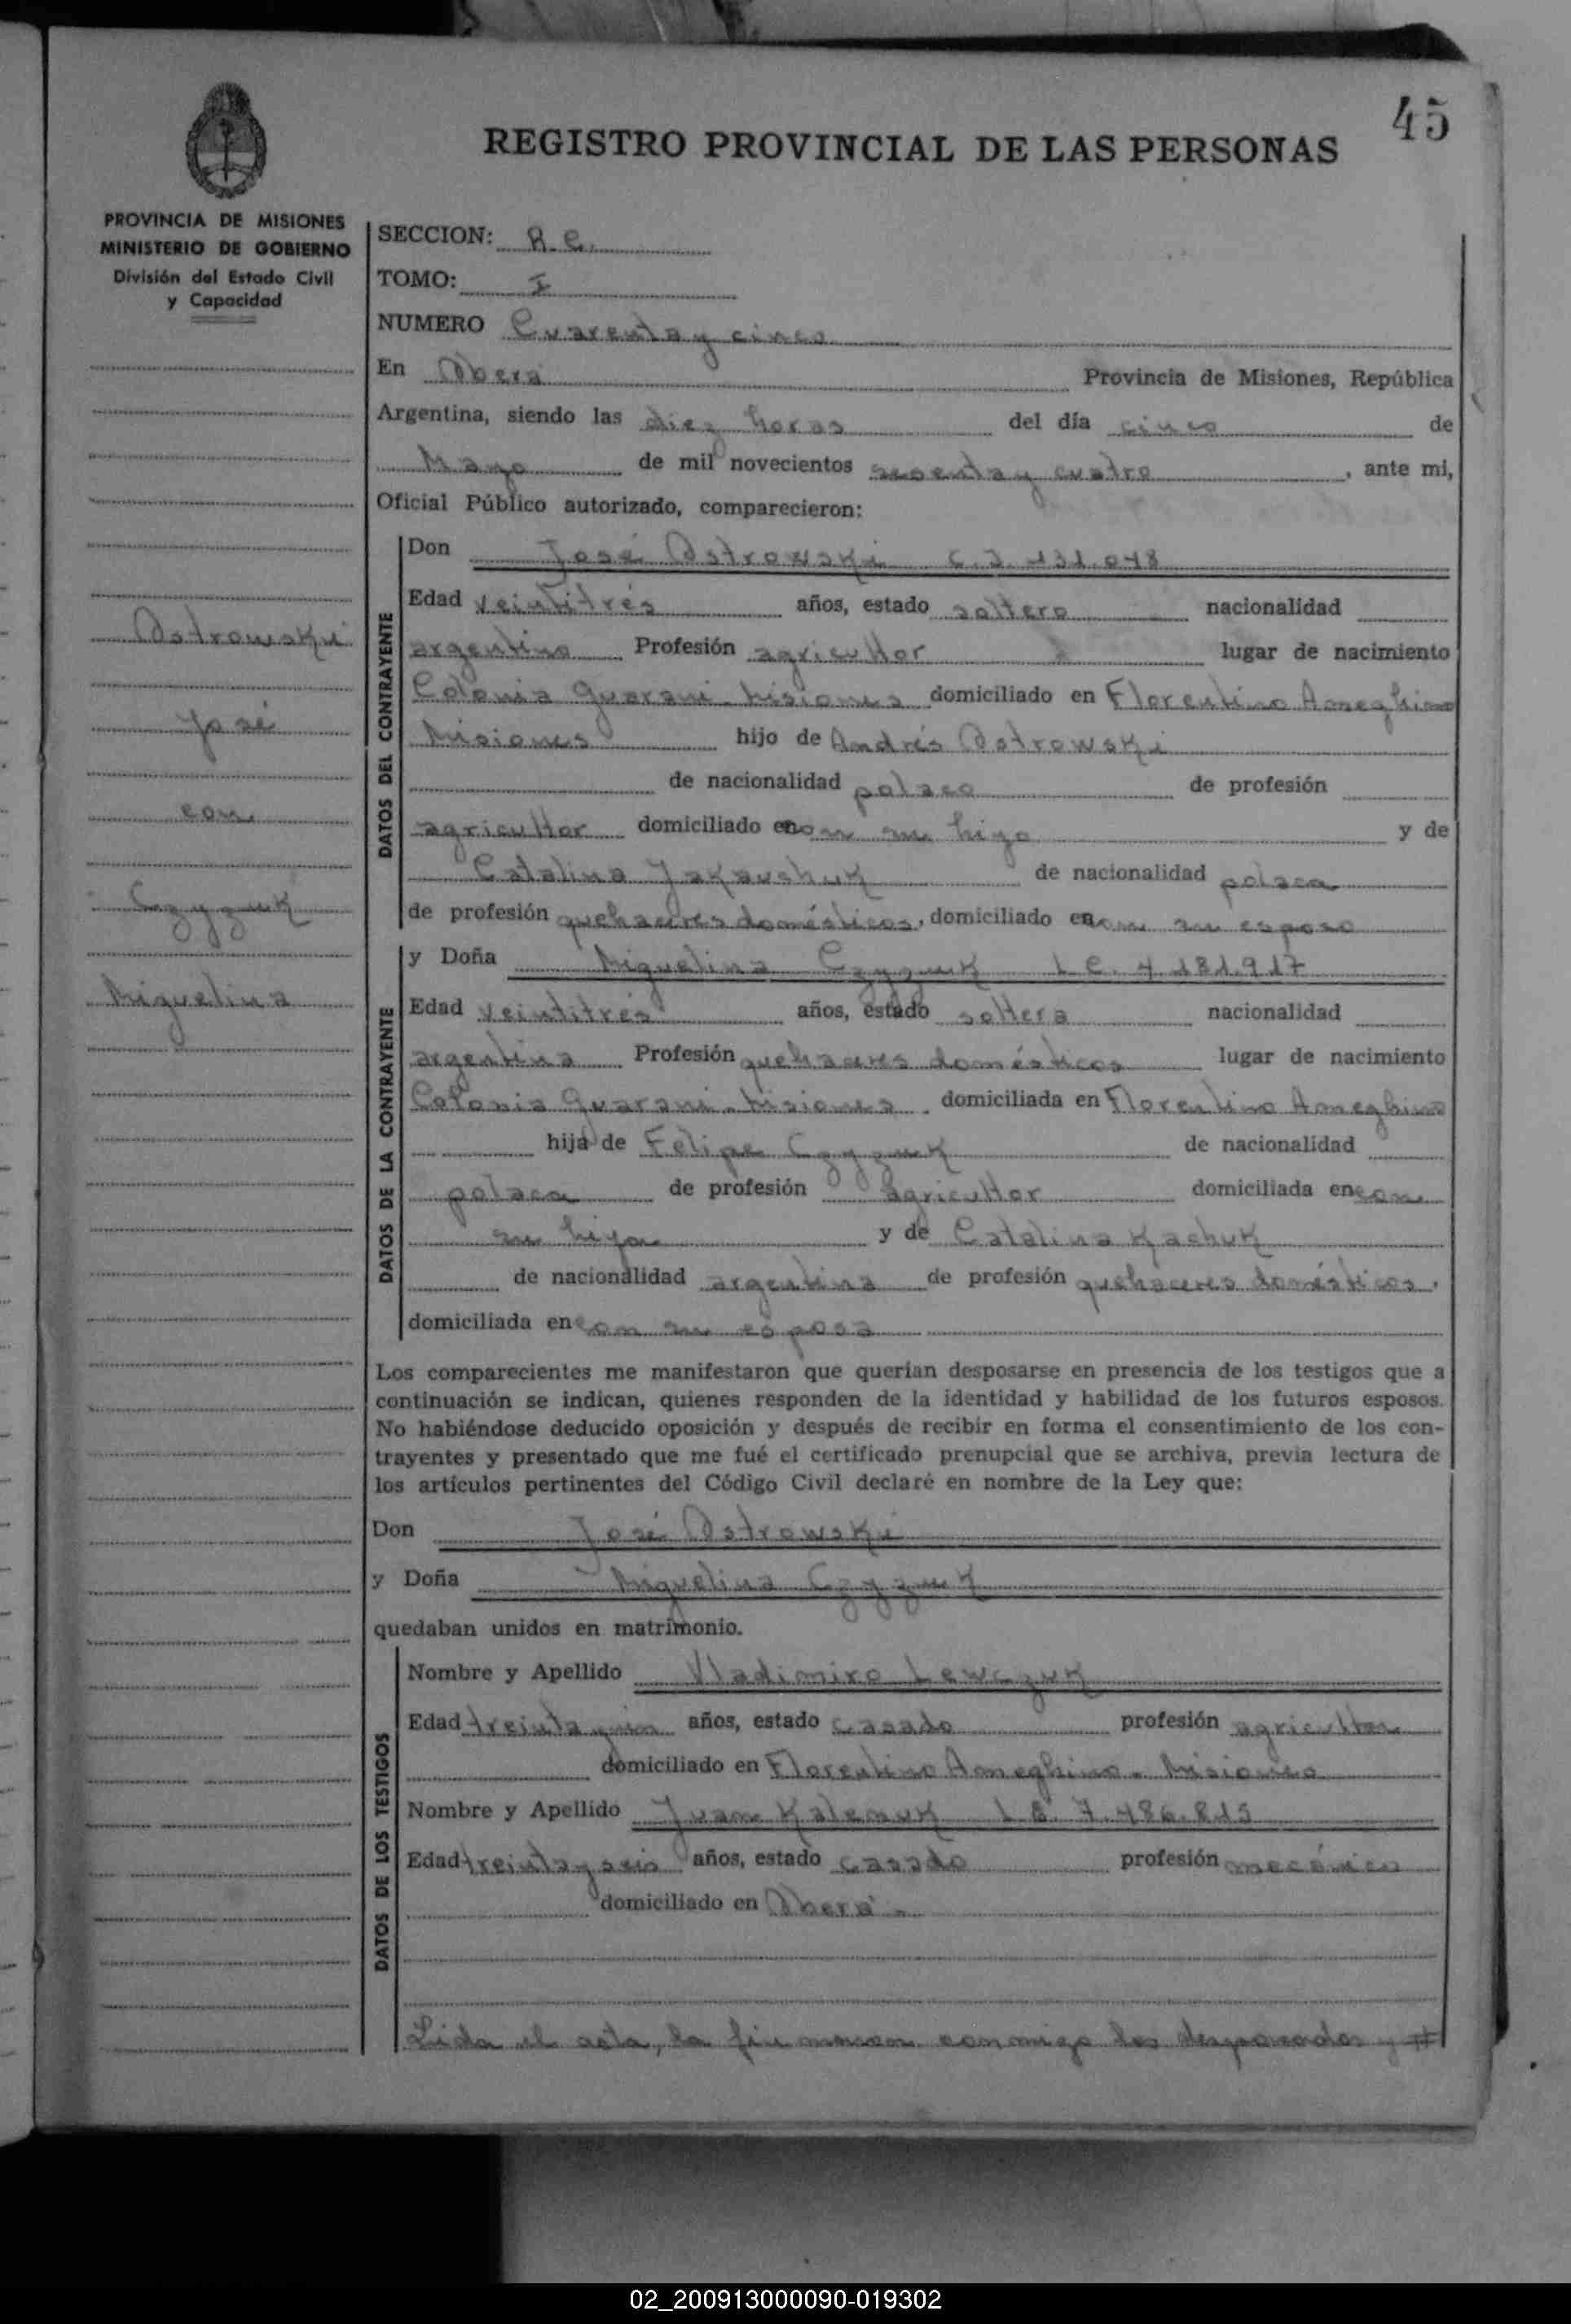 45
REGISTRO PROVINCIAL DE LAS PERSONAS
PROVINCIA DE MISIONES
MINISTERIO DE GOBIERNO
División del Estado Civil
y Capacidad
Ostrowski
José
con
Czyzuk
Miguelina
SECCION: R. C.
TOMO: I
NUMERO Cuarenta y cinco
En Oberá Provincia de Misiones, República
Argentina, siendo las diez horas del día cinco de
Mayo de mil novecientos sesenta y cuatro, ante mi,
Oficial Público autorizado, comparecieron:
DATOS DEL CONTRAYENTE
Don José Ostrowski C. I. 131.048
Edad veintitrés años, estado soltero nacionalidad
argentino Profesión agricultor lugar de nacimiento
Colonia Guaraní - Misiones domiciliado en Florentino Ameghino
Misiones hijo de Andrés Ostrowski
de nacionalidad polaco de profesión
agricultor domiciliado con su hijo y de
Catalina Jakauchuk de nacionalidad polaca
de profesión quehaceres domésticos, domiciliado con su esposo
DATOS DE LA CONTRAYENTE
y Doña Miguelina Czyzuk L C. 4.181.917
Edad veintitrés años, estado soltera nacionalidad
argentina Profesión quehaceres domésticos lugar de nacimiento
Colonia Guaraní - Misiones. domiciliada en Florentino Ameghino
hija de Felipe Czyzuk de nacionalidad
polaca de profesión agricultor domiciliada en con
su hija y de Catalina Kachuk
de nacionalidad argentina de profesión quehaceres domésticos,
domiciliada en con su esposa
Los comparecientes me manifestaron que querían desposarse en presencia de los testigos que a
continuación se indican, quienes responden de la identidad y habilidad de los futuros esposos.
No habiéndose deducido oposición y después de recibir en forma el consentimiento de los con-
trayentes y presentado que me fué el certificado prenupcial que se archiva, previa lectura de
los artículos pertinentes del Código Civil declaré en nombre de la Ley que:
Don José Ostrowski
y Doña Miguelina Czyzuk
quedaban unidos en matrimonio.
DATOS DE LOS TESTIGOS
Nombre y Apellido Vladimiro Lewczuk
Edad treinta y un años, estado casado profesión agricultor
domiciliado en Florentino Ameghino - Misiones
Nombre y Apellido Juan Kalenuk L E. 7.486.815
Edad treinta y seis años, estado casado profesión mecánico
domiciliado en Oberá -
Lida el acta, la firmaron conmigo los desposados y #
02_200913000090-019302